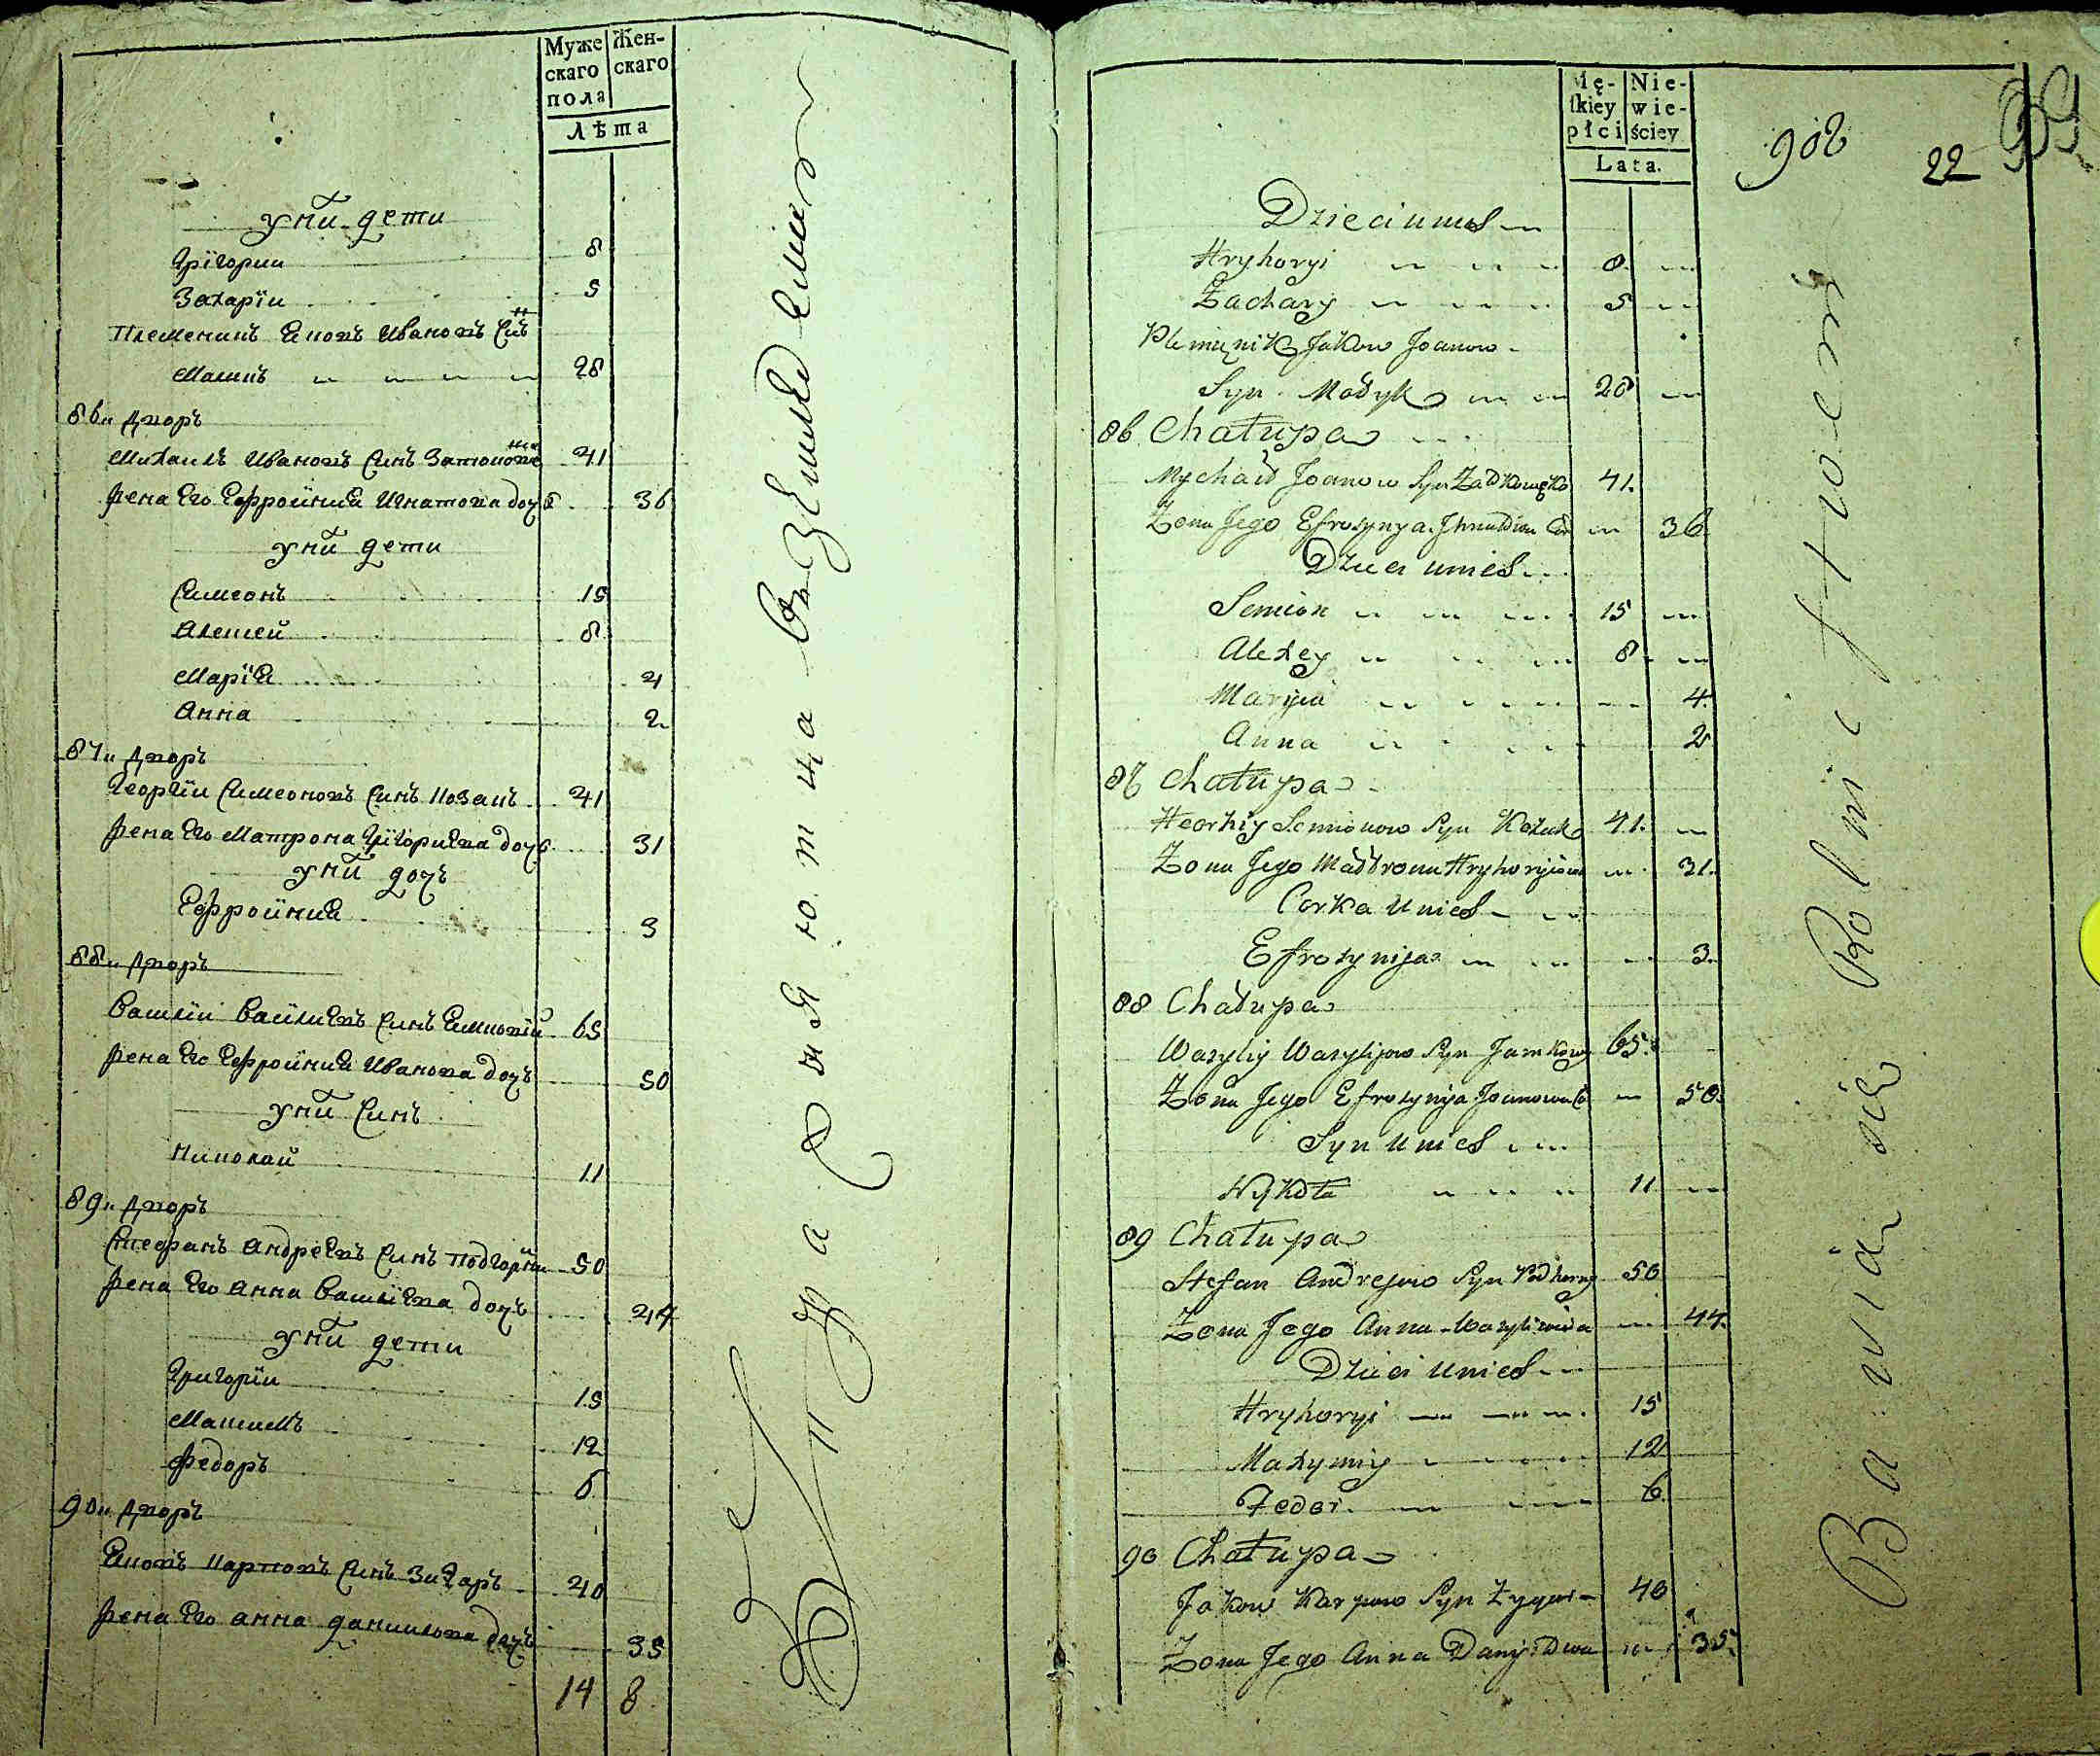 Муже
скаго
пола
Жен-
скаго
лѣта
у нй дети
Григории 8
Захарїи 5
племеникъ Яковъ Ивановъ Снъ
28
86й Дворъ
Михаилъ Ивановъ Синъ 41
жена Его Ефросиния Игнатова дочъ 36
у нй дети
Симеонъ 15
Алексей 8
Марїя 4
Анна 2
87й Дворъ
Георгїй Симеоновъ Синъ Козакъ 41
жена Его Матрона Григориева дочъ 31
у нй дочъ
Ефросиния 3
88й Дворъ
Василїй Василиевъ Синъ 65
жена Его Ефросиния Иванова дочъ 50
у нй Синъ
Николай 11
89й Дворъ
Стефанъ Андреевъ Синъ Подгорни 50
жена Его Анна Василїева дочъ 44
у нй дети
Григорїи 15
Максимъ 12
Федоръ 6
90й Дворъ
Яковъ Карповъ Синъ Зигаръ 40
жена Его Анна Даниилова дочъ 35
14 8
упражняютца въ Земледелии
Mę-
ſkiey
płci
Nie-
wie-
ściey
Lata.
908
22
Dzieci u nich
Hryhoryi 8
Zachary 5
Plemięnik Jakow Joanow
Syn 28
86 Chałupa
Mychaił Joanow Syn 41.
Żona Jego Efrosynya 36
Dzieci u nich
Semion 15
Alexey 8
Maryia 4
Anna 2
87 Chałupa
Heorhiy Semionow Syn Kozak 41.
Żona Jego Mattrona Hryhoryiowa 31.
Corka u nich
Efrosynija 3.
88 Chałupa
Wasyliy Wasylijow Syn 65.
Żona Jego Efrosynija Joanowa C 50.
Syn u nich
Nykoła 11
89 Chałupa
Stefan Andrejow Syn Podhorny 50
Żona Jego Anna Wasyliowa 44.
Dzieci u nich
Hryhoryi 15
Maxymiy 12
Fedor 6
90 Chałupa
Jakow Karpow Syn Zygar 40
Żona Jego Anna Daniłowa 35.
Bawią się Rolnictwem